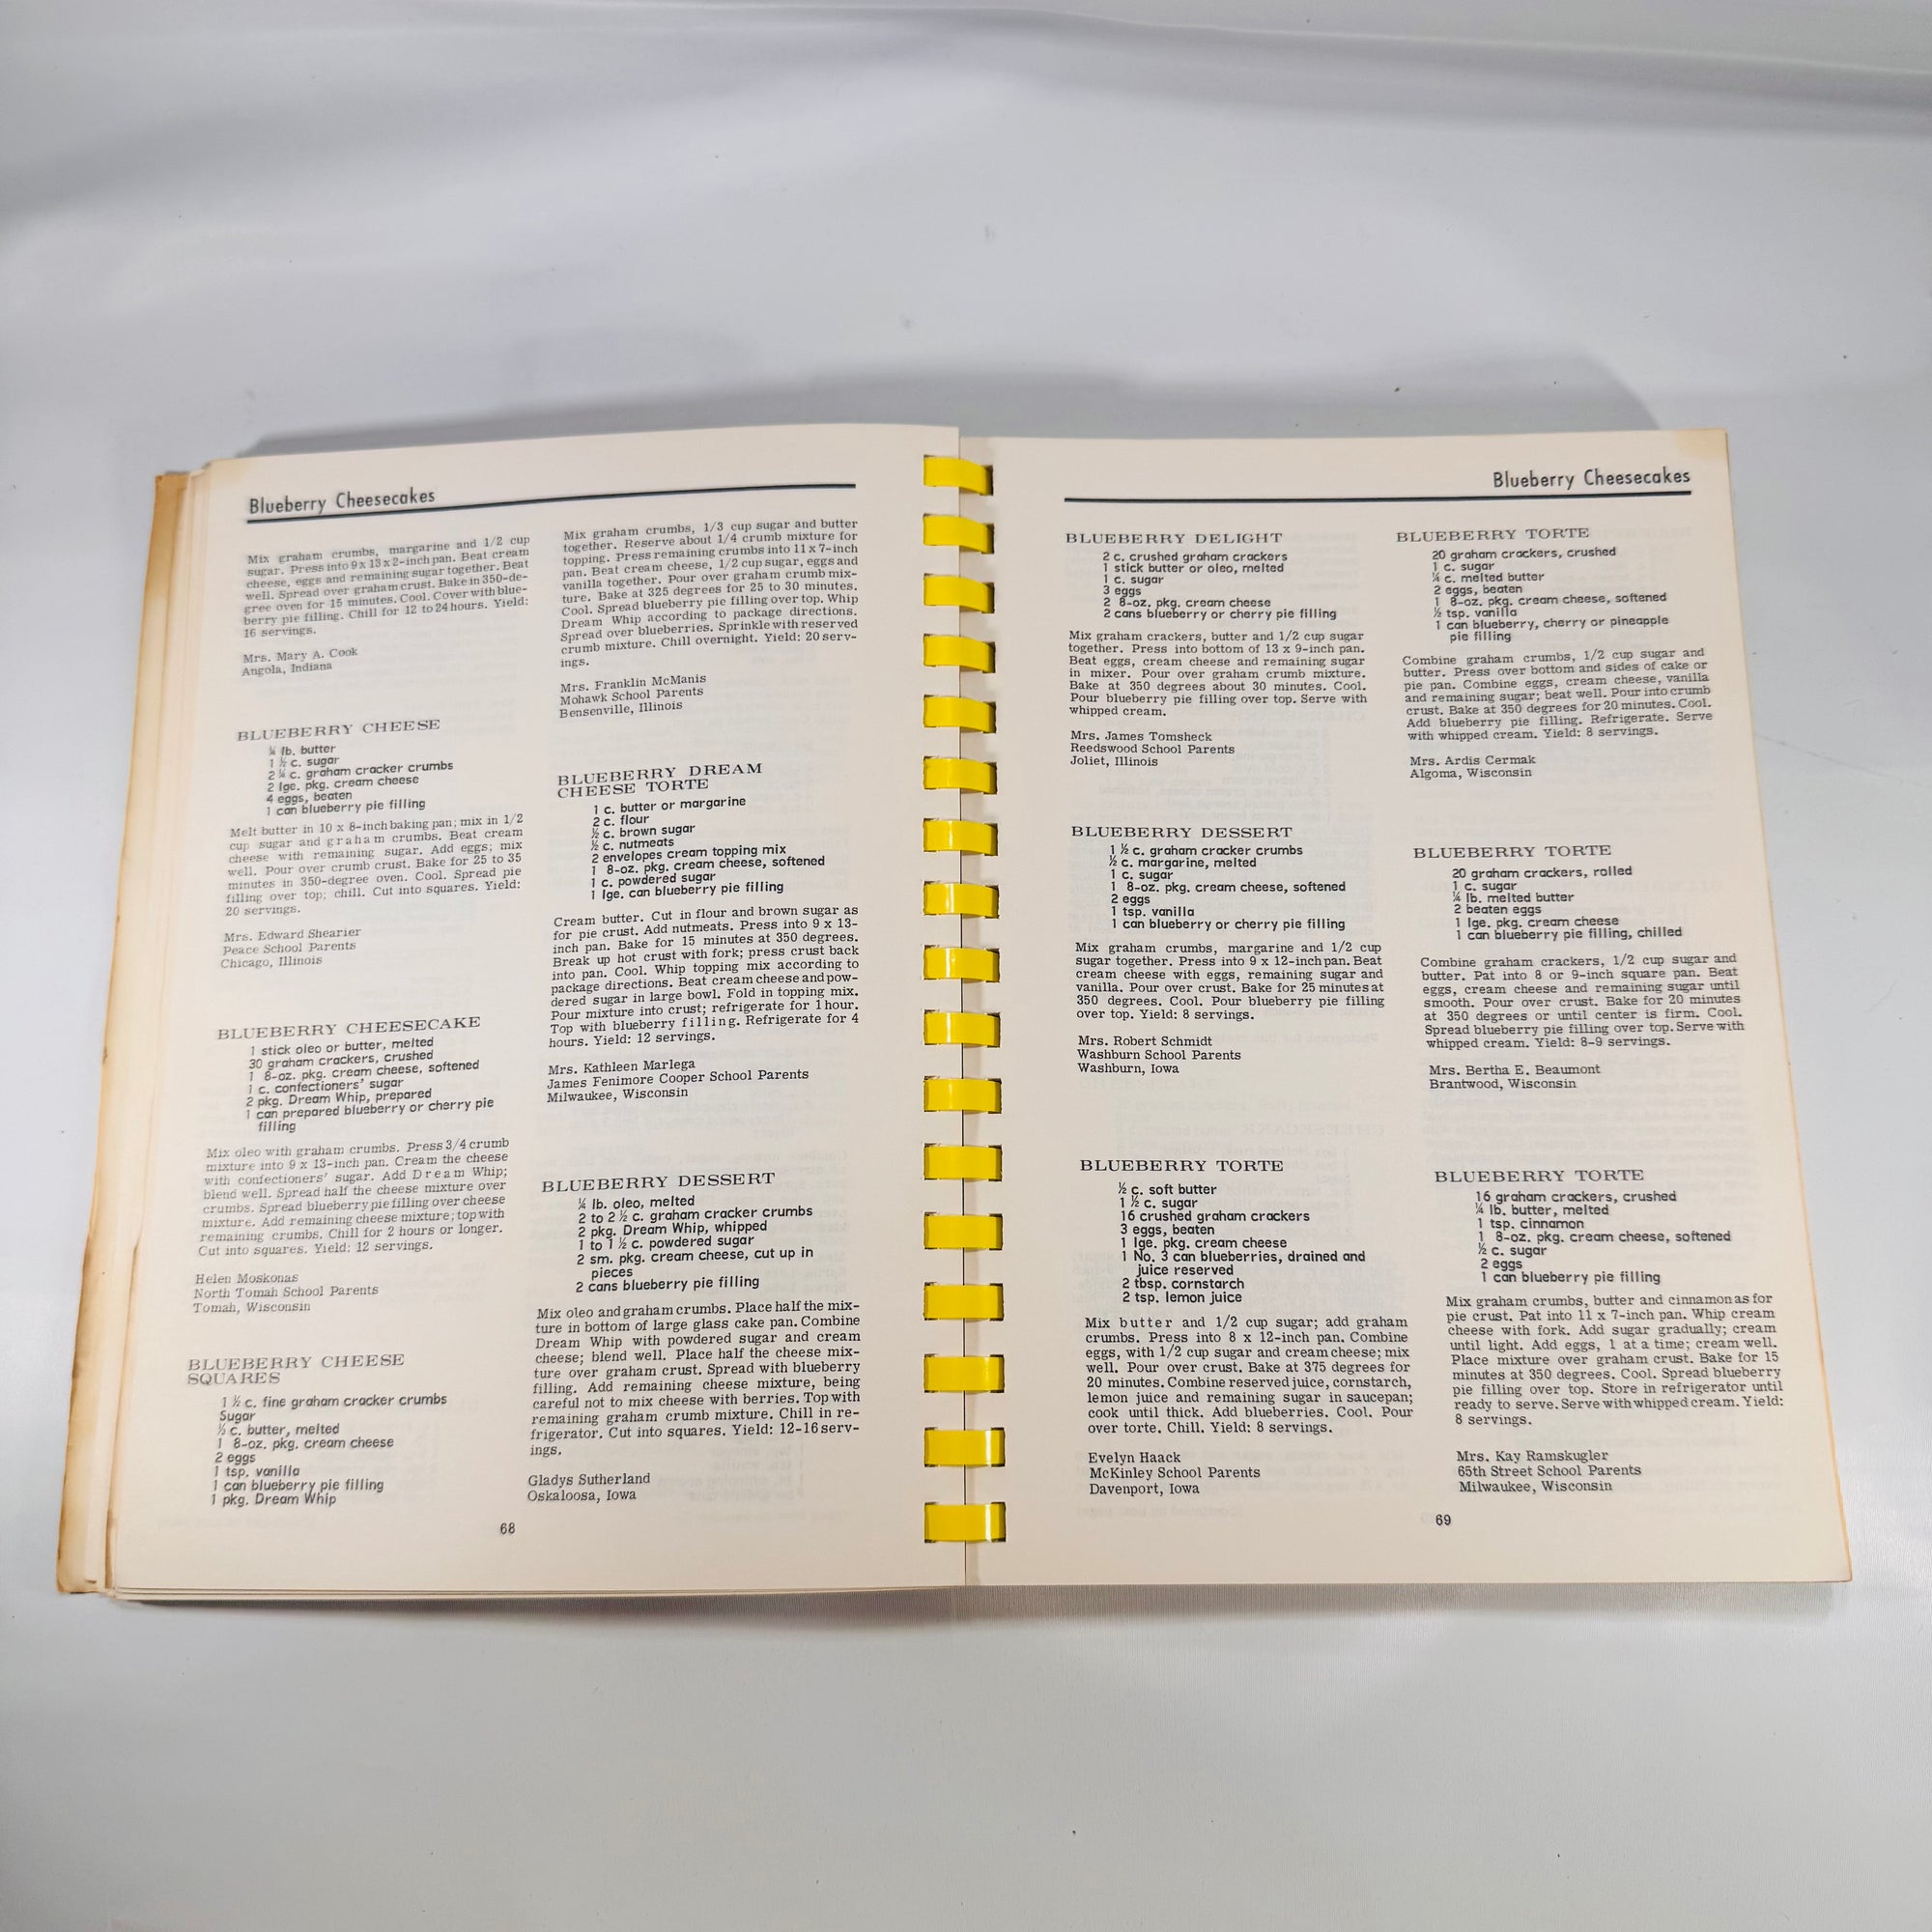 Blueberry Cheesecakes
Mix graham crumbs, margarine and 1/2 cup
sugar. Press into 9 x 13 x 2-inch pan. Beat cream
cheese, eggs and remaining sugar together. Beat
well. Spread over graham crust. Bake in 350-de-
gree oven for 15 minutes. Cool. Cover with blue-
berry pie filling. Chill for 12 to 24 hours. Yield:
16 servings.
Mrs. Mary A. Cook
Angola, Indiana
BLUEBERRY CHEESE
¼ lb. butter
1 ½ c. sugar
2 ¼ c. graham cracker crumbs
2 lge. pkg. cream cheese
4 eggs, beaten
1 can blueberry pie filling
Melt butter in 10 x 8-inch baking pan; mix in 1/2
cup sugar and graham crumbs. Beat cream
cheese with remaining sugar. Add eggs; mix
well. Pour over crumb crust. Bake for 25 to 35
minutes in 350-degree oven. Cool. Spread pie
filling over top; chill. Cut into squares. Yield:
20 servings.
Mrs. Edward Shearier
Peace School Parents
Chicago, Illinois
BLUEBERRY CHEESECAKE
1 stick oleo or butter, melted
30 graham crackers, crushed
1 8-oz. pkg. cream cheese, softened
1 c. confectioners' sugar
2 pkg. Dream Whip, prepared
1 can prepared blueberry or cherry pie
filling
Mix oleo with graham crumbs. Press 3/4 crumb
mixture into 9 x 13-inch pan. Cream the cheese
with confectioners' sugar. Add Dream Whip;
blend well. Spread half the cheese mixture over
crumbs. Spread blueberry pie filling over cheese
mixture. Add remaining cheese mixture; top with
remaining crumbs. Chill for 2 hours or longer.
Cut into squares. Yield: 12 servings.
Helen Moskonas
North Tomah School Parents
Tomah, Wisconsin
BLUEBERRY CHEESE
SQUARES
1 ½ c. fine graham cracker crumbs
Sugar
c. butter, melted
1 8-oz. pkg. cream cheese
2 eggs
1 tsp. vanilla
1 can blueberry pie filling
1 pkg. Dream Whip
Mix graham crumbs, 1/3 cup sugar and butter
together. Reserve about 1/4 crumb mixture for
topping. Press remaining crumbs into 11 x 7-inch
pan. Beat cream cheese, 1/2 cup sugar, eggs and
vanilla together. Pour over graham crumb mix-
ture. Bake at 325 degrees for 25 to 30 minutes.
Cool. Spread blueberry pie filling over top. Whip
Dream Whip according to package directions.
Spread over blueberries. Sprinkle with reserved
crumb mixture. Chill overnight. Yield: 20 serv-
ings.
Mrs. Franklin McManis
Mohawk School Parents
Bensenville, Illinois
BLUEBERRY DREAM
CHEESE TORTE
1 c. butter or margarine
2 c. flour
½ c. brown sugar
½ c. nutmeats
2 envelopes cream topping mix
1 8-oz. pkg. cream cheese, softened
1 c. powdered sugar
1 lge. can blueberry pie filling
Cream butter. Cut in flour and brown sugar as
for pie crust. Add nutmeats. Press into 9 x 13-
inch pan. Bake for 15 minutes at 350 degrees.
Break up hot crust with fork; press crust back
into pan. Cool. Whip topping mix according to
package directions. Beat cream cheese and pow-
dered sugar in large bowl. Fold in topping mix.
Pour mixture into crust; refrigerate for 1 hour.
Top with blueberry filling. Refrigerate for 4
hours. Yield: 12 servings.
Mrs. Kathleen Marlega
James Fenimore Cooper School Parents
Milwaukee, Wisconsin
BLUEBERRY DESSERT
¼ lb. oleo, melted
2 to 2 ½ c. graham cracker crumbs
2 pkg. Dream Whip, whipped
1 to 1 ½ c. powdered sugar
2 sm. pkg. cream cheese, cut up in
pieces
2 cans blueberry pie filling
Mix oleo and graham crumbs. Place half the mix-
ture in bottom of large glass cake pan. Combine
Dream Whip with powdered sugar and cream
cheese; blend well. Place half the cheese mix-
ture over graham crust. Spread with blueberry
filling. Add remaining cheese mixture, being
careful not to mix cheese with berries. Top with
remaining graham crumb mixture. Chill in re-
frigerator. Cut into squares. Yield: 12-16 serv-
ings.
Gladys Sutherland
Oskaloosa, Iowa
68
Blueberry Cheesecakes
BLUEBERRY DELIGHT
2 c. crushed graham crackers
1 stick butter or oleo, melted
1 c. sugar
3 eggs
2 8-oz. pkg. cream cheese
2 cans blueberry or cherry pie filling
Mix graham crackers, butter and 1/2 cup sugar
together. Press into bottom of 13 x 9-inch pan.
Beat eggs, cream cheese and remaining sugar
in mixer. Pour over graham crumb mixture.
Bake at 350 degrees about 30 minutes. Cool.
Pour blueberry pie filling over top. Serve with
whipped cream.
Mrs. James Tomsheck
Reedswood School Parents
Joliet, Illinois
BLUEBERRY DESSERT
1 ½ c. graham cracker crumbs
½ c. margarine, melted
1 c. sugar
1 8-oz. pkg. cream cheese, softened
2 eggs
1 tsp. vanilla
1 can blueberry or cherry pie filling
Mix graham crumbs, margarine and 1/2 cup
sugar together. Press into 9 x 12-inch pan. Beat
cream cheese with eggs, remaining sugar and
vanilla. Pour over crust. Bake for 25 minutes at
350 degrees. Cool. Pour blueberry pie filling
over top. Yield: 8 servings.
Mrs. Robert Schmidt
Washburn School Parents
Washburn, Iowa
BLUEBERRY TORTE
½ c. soft butter
1 ½ c. sugar
16 crushed graham crackers
3 eggs, beaten
1 lge. pkg. cream cheese
1 No. 3 can blueberries, drained and
juice reserved
2 tbsp. cornstarch
2 tsp. lemon juice
Mix butter and 1/2 cup sugar; add graham
crumbs. Press into 8 x 12-inch pan. Combine
eggs, with 1/2 cup sugar and cream cheese; mix
well. Pour over crust. Bake at 375 degrees for
20 minutes. Combine reserved juice, cornstarch,
lemon juice and remaining sugar in saucepan;
cook until thick. Add blueberries. Cool. Pour
over torte. Chill. Yield: 8 servings.
Evelyn Haack
McKinley School Parents
Davenport, Iowa
BLUEBERRY TORTE
20 graham crackers, crushed
1 c. sugar
¼ c. melted butter
2 eggs, beaten
1 8-oz. pkg. cream cheese, softened
½ tsp. vanilla
1 can blueberry, cherry or pineapple
pie filling
Combine graham crumbs, 1/2 cup sugar and
butter. Press over bottom and sides of cake or
pie pan. Combine eggs, cream cheese, vanilla
and remaining sugar; beat well. Pour into crumb
crust. Bake at 350 degrees for 20 minutes. Cool.
Add blueberry pie filling. Refrigerate. Serve
with whipped cream. Yield: 8 servings.
Mrs. Ardis Cermak
Algoma, Wisconsin
BLUEBERRY TORTE
20 graham crackers, rolled
1 c. sugar
¼ lb. melted butter
2 beaten eggs
1 lge. pkg. cream cheese
1 can blueberry pie filling, chilled
Combine graham crackers, 1/2 cup sugar and
butter. Pat into 8 or 9-inch square pan. Beat
eggs, cream cheese and remaining sugar until
smooth. Pour over crust. Bake for 20 minutes
at 350 degrees or until center is firm. Cool.
Spread blueberry pie filling over top. Serve with
whipped cream. Yield: 8-9 servings.
Mrs. Bertha E. Beaumont
Brantwood, Wisconsin
BLUEBERRY TORTE
16 graham crackers, crushed
¼ lb. butter, melted
1 tsp. cinnamon
1 8-oz. pkg. cream cheese, softened
½ c. sugar
2 eggs
1 can blueberry pie filling
Mix graham crumbs, butter and cinnamon as for
pie crust. Pat into 11 x 7-inch pan. Whip cream
cheese with fork. Add sugar gradually; cream
until light. Add eggs, 1 at a time; cream well.
Place mixture over graham crust. Bake for 15
minutes at 350 degrees. Cool. Spread blueberry
pie filling over top. Store in refrigerator until
ready to serve. Serve with whipped cream. Yield:
8 servings.
Mrs. Kay Ramskugler
65th Street School Parents
Milwaukee, Wisconsin
69